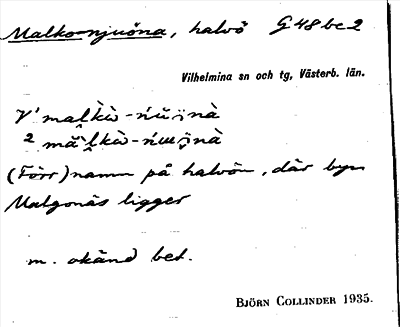 Malko-njuöna, halvö G 48 b c 2
Vilhelmina sn och tg, Västerb. län.
(Förr) namn på halvön, där byn
Malgonäs ligger
m. okänd bet.
BJÖRN COLLINDER 1935.